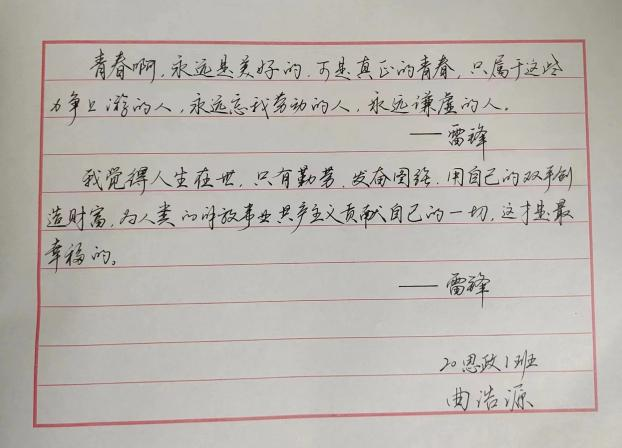 青春啊,永远是美好的,可是真正的青春,只属于这些
力争上游的人,永远忘我劳动的人,永远谦虚的人。
——雷锋
我觉得人生在世,只有勤劳,发奋图强,用自己的双手创
造财富,为人类的解放事业共产主义贡献自己的一切,这才是最
幸福的。
——雷锋
20思政1班
曲浩源